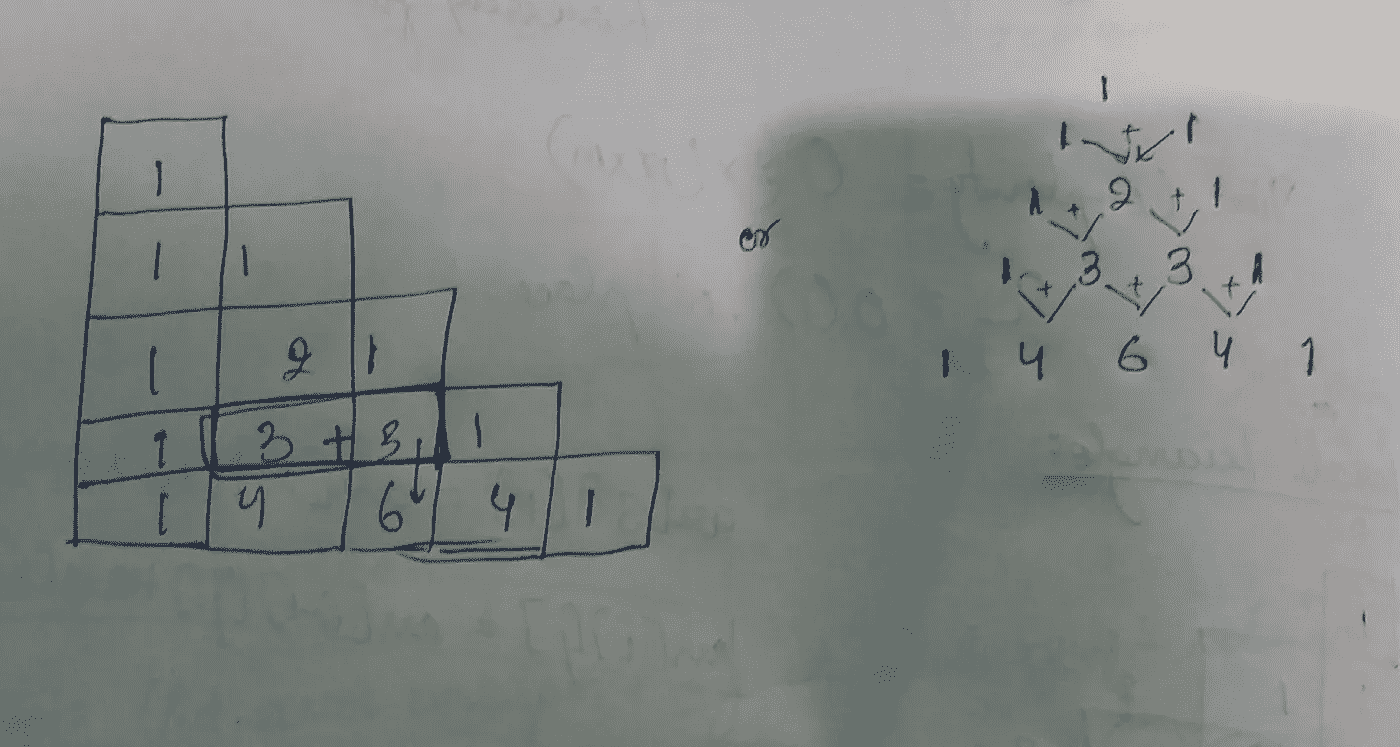 1
1 1
1 2 1
1 3 + 3 1
1 4 6 4 1
or
1
1 + 1
1 + 2 + 1
1 + 3 + 3 + 1
1 4 6 4 1